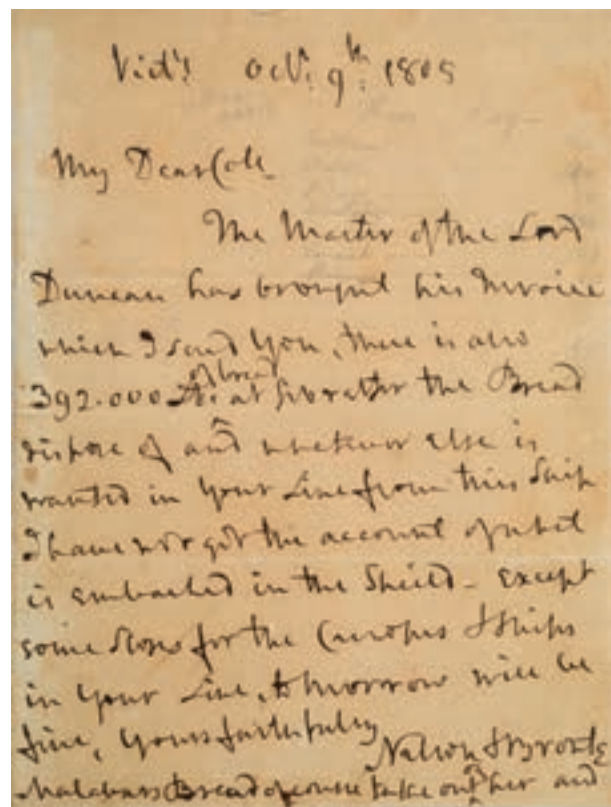 Vict'y: Octr: 9th: 1805
My Dear Coll
The Master of the Lord
Duncan has brought his Invoice
which I send You, there is also
of bread
392.000 lb. at Gibralter the Bread
dispose of and whatever else is
wanted in Your Line from this Ship
I have not got the account of what
is embarked in the Sheild - except
some slops for the Canopus & Ships
in Your Line, tomorrow will be
fine, Yours faithfully
Nelson & Bronte
Malabars Bread of course take out of her and